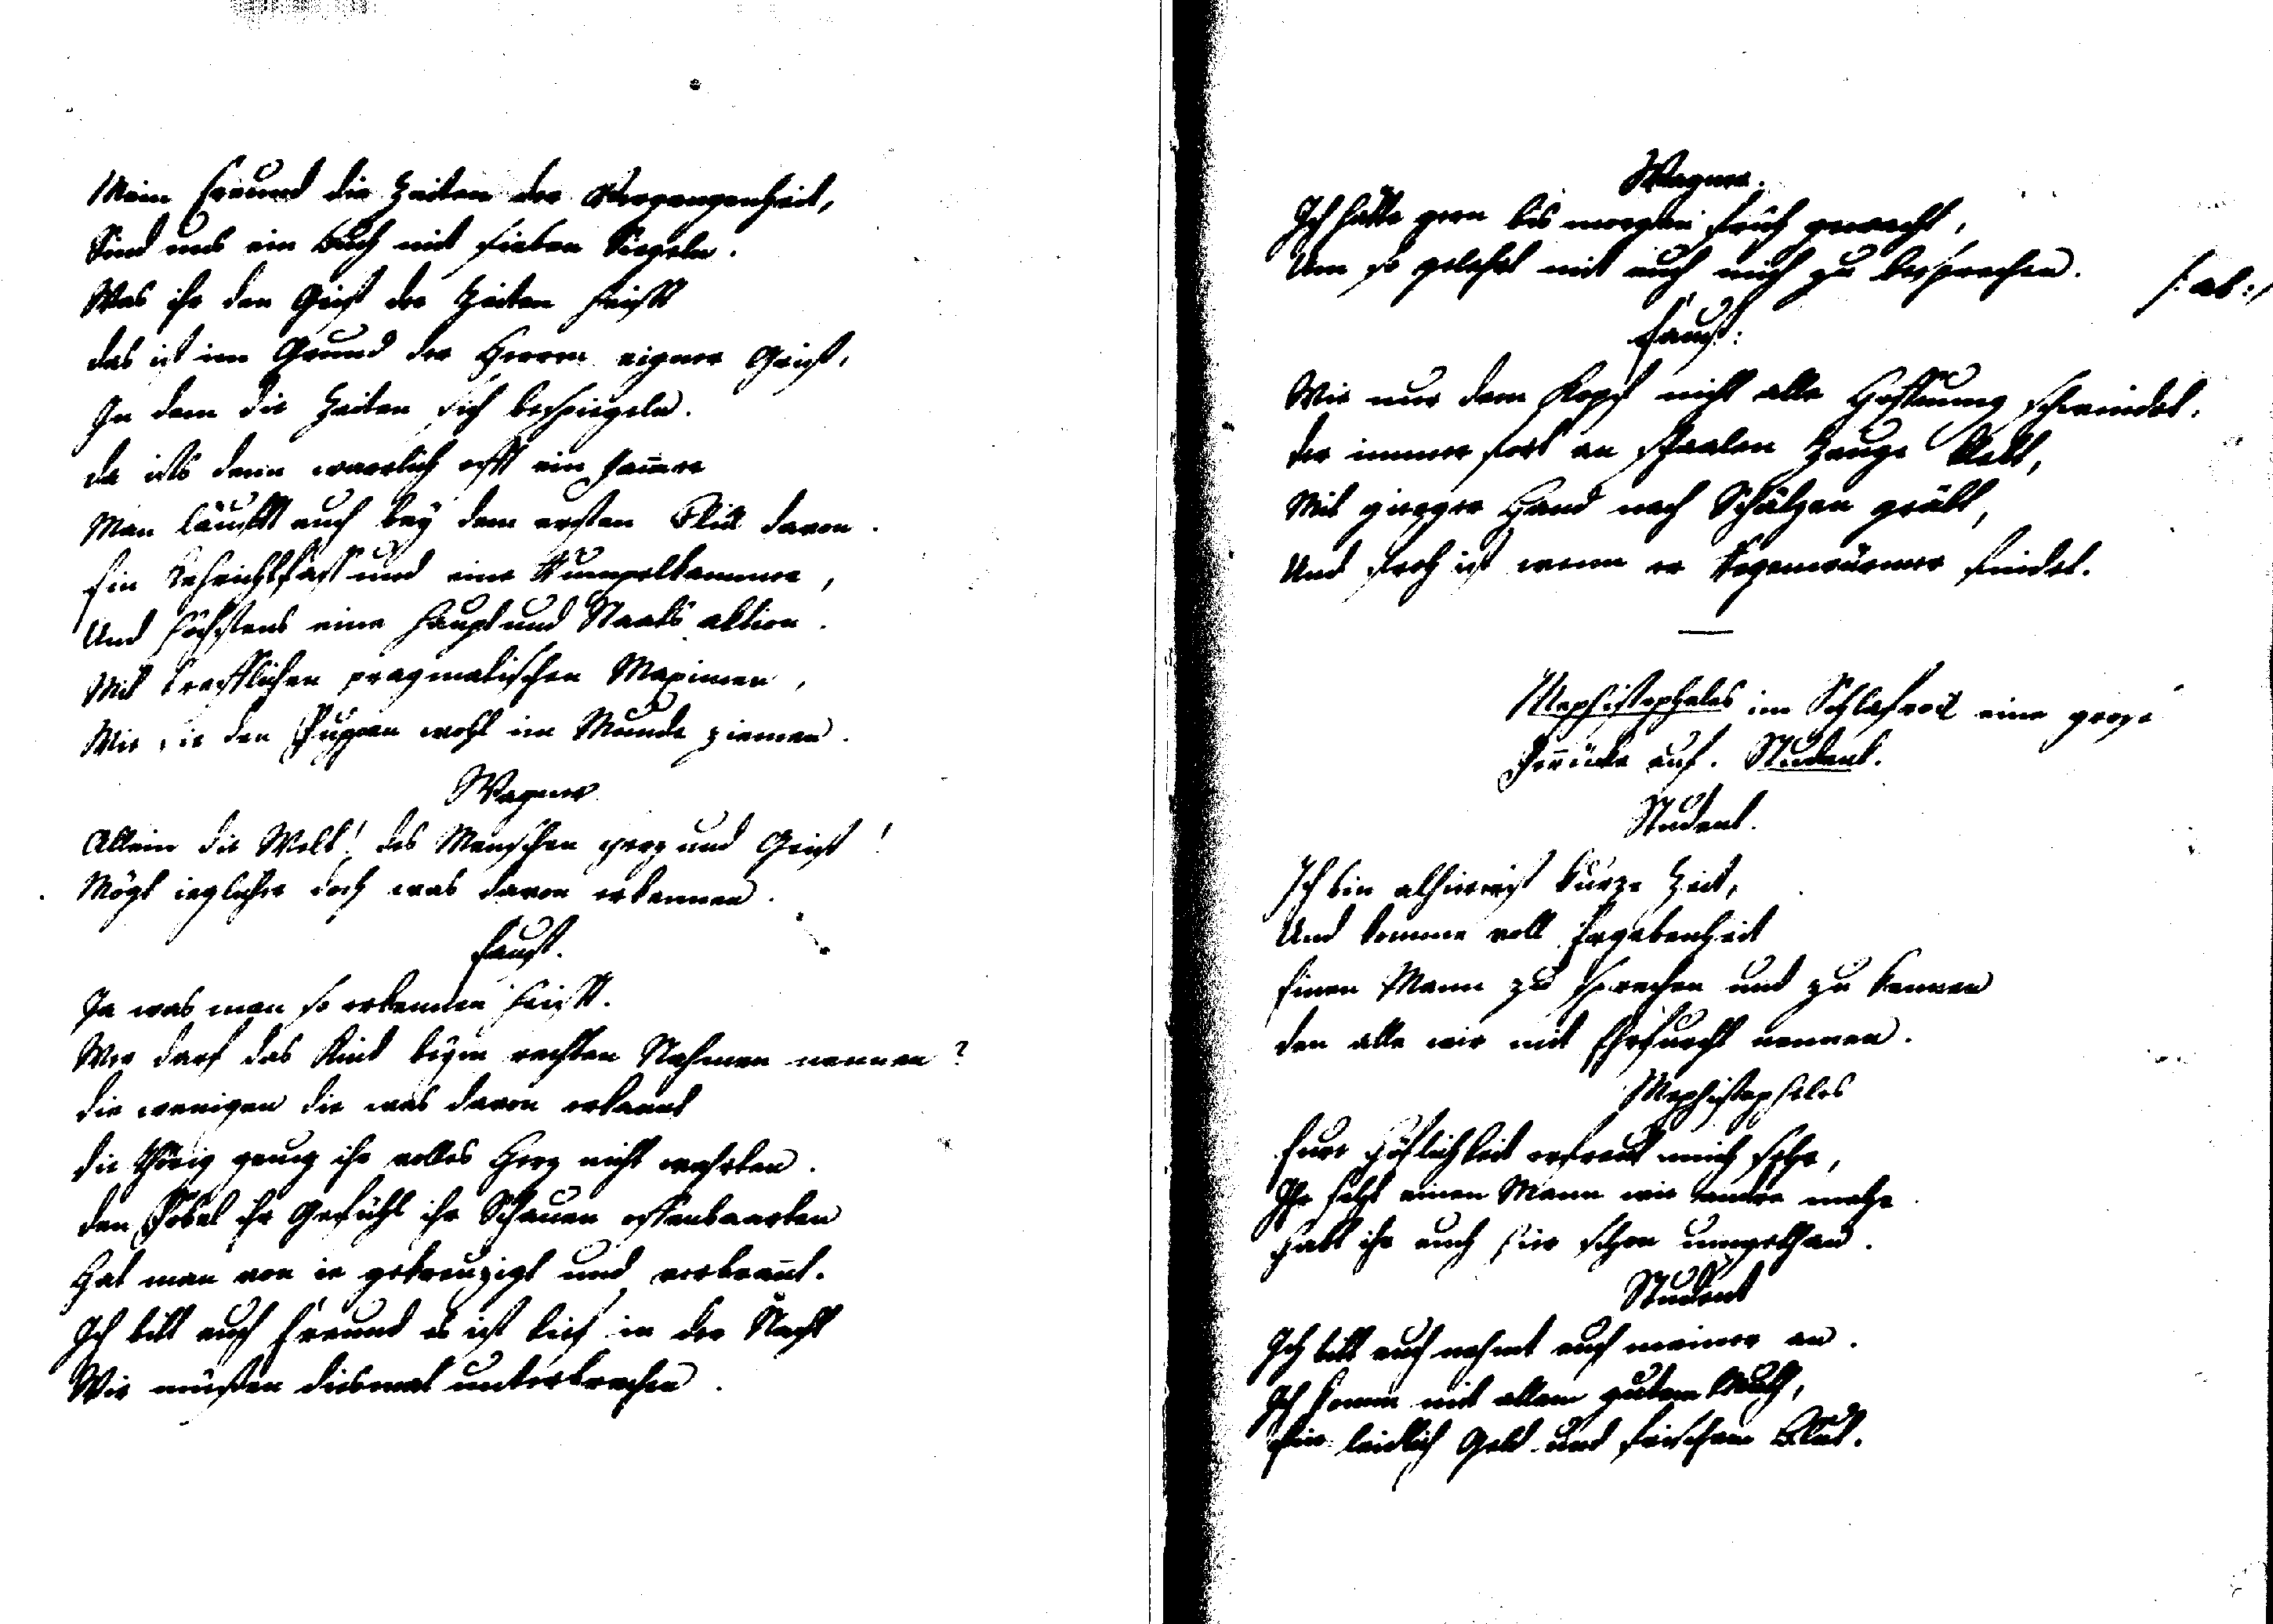 Mein Freund die Zeiten der Vergangenheit,
Sind uns ein Buch mit sieben Siegeln.
Was ihr den Geist der Zeiten heisst
das ist im Grund der Herren eigner Geist,
In dem die Zeiten sich bespiegeln.
da ists denn warrlich offt ein Jam̄er
Man läufft euch bey dem ersten Blick davon.
Ein Kehrichtfass und eine Rumpelkammer,
Und höchstens eine Haupt und Staats aktion.
Mit trefflichen pragmatischen Maximen,
Wie sie den Puppen wohl im Munde ziemen.
Wagner
Allein die Welt! des Menschen Herz und Geist!
Mögt ieglicher doch was davon erkennen.
Faust.
Ja was man so erkennen heisst.
Wer darf das Kind beym rechten Nahmen nennen?
die wenigen die was davon erkannt
die thörig genug ihr volles Herz nicht wahrten.
dem Pöbel ihr Gefühl ihr Schauen offenbaarten
Hat man von ie gekreuzigt und verbran̄t.
Ich bitt euch Freund es ist tief in der Nacht
Wir müssen diesmal unterbrechen.
Wagner.
Ich hätte gern bis morgen früh gewacht,
Um so gelehrt mit euch mich zu besprechen.
/: ab :/
Faust:
Wie nur dem Kopf nicht alle Hoffnung schwindet.
der immer fort an schaalem Zeuge klebt,
Mit gierger Hand nach Schätzen gräbt,
Und froh ist wenn er Regenwürmer findet.
Mephistopheles im Schlafrock eine grose
Perrücke auf. Student.
Student.
Ich bin alhier erst kurze Zeit,
Und komme voll Ergebenheit
Einen Mann zu sprechen und zu kennen
den alle mir mit Ehrfurcht nennen.
Mephistopheles
Eure Höflichkeit erfreut mich sehr,
Ihr seht einen Mann wie andre mehr
Habt ihr euch hier schon umgethan.
Student
Ich bitt euch nehmt euch meiner an.
Ich komm mit allem gutem Muth,
Ein leidlich Geld und frischem Blut.